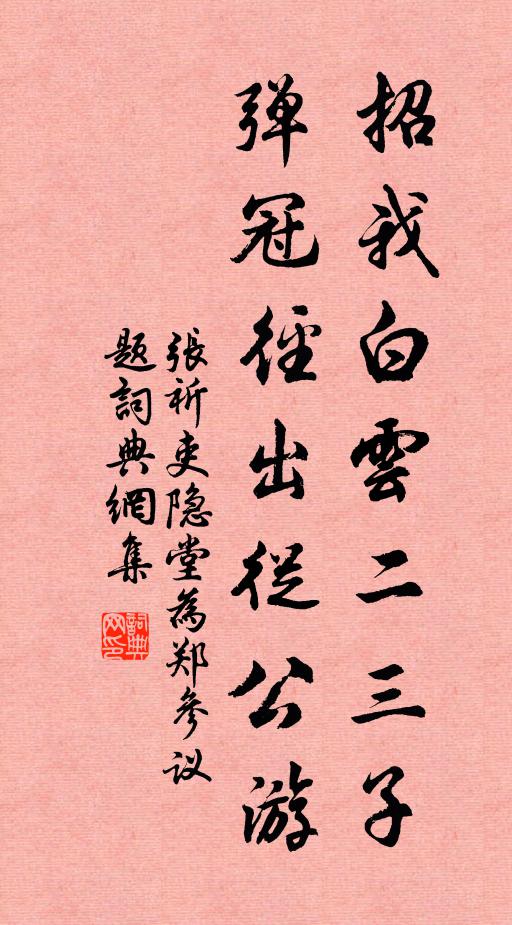 招我白雲二三子
弹冠徑出從公游
張祈吏隐堂為郑參议
題詞典網集
詞典网印